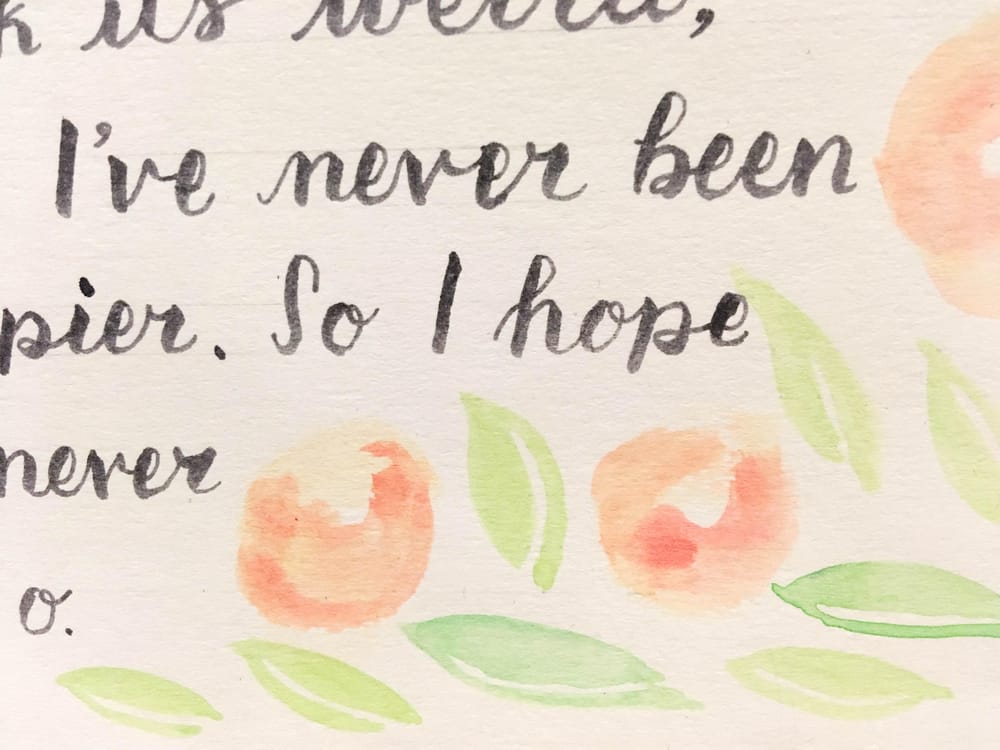 k us weird,
I've never been
pier. So I hope
never
o.